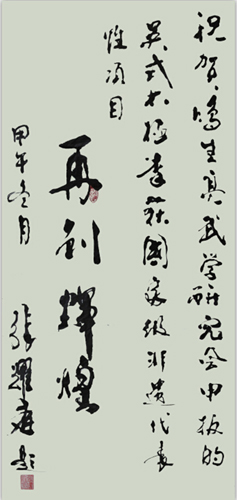 祝贺 生 武学研究会申报的
吴式太极拳获国家级非遗代表
性项目
再创辉煌
甲午冬月
张耀庭题